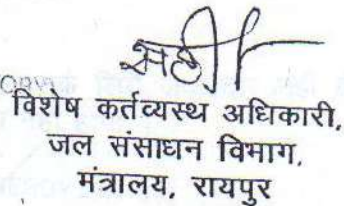 सही/-
विशेष कर्तव्यस्थ अधिकारी,
जल संसाधन विभाग,
मंत्रालय, रायपुर